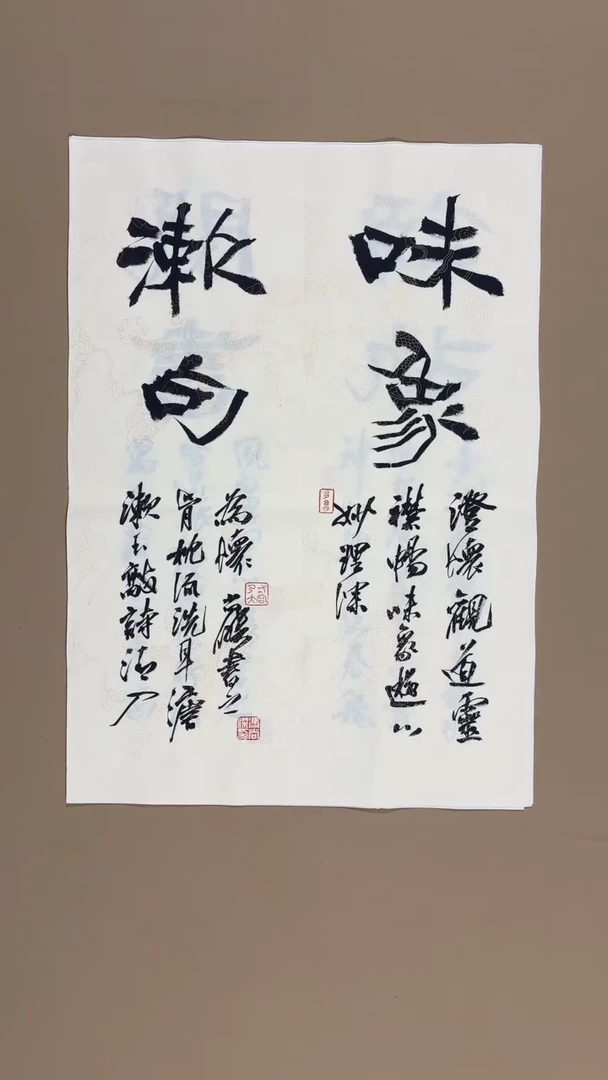 味象
澄懷觀道靈
襟暢味象遊心
妙理深
漱句
漱玉敲詩清入
骨枕流洗耳澹
為懷
書之